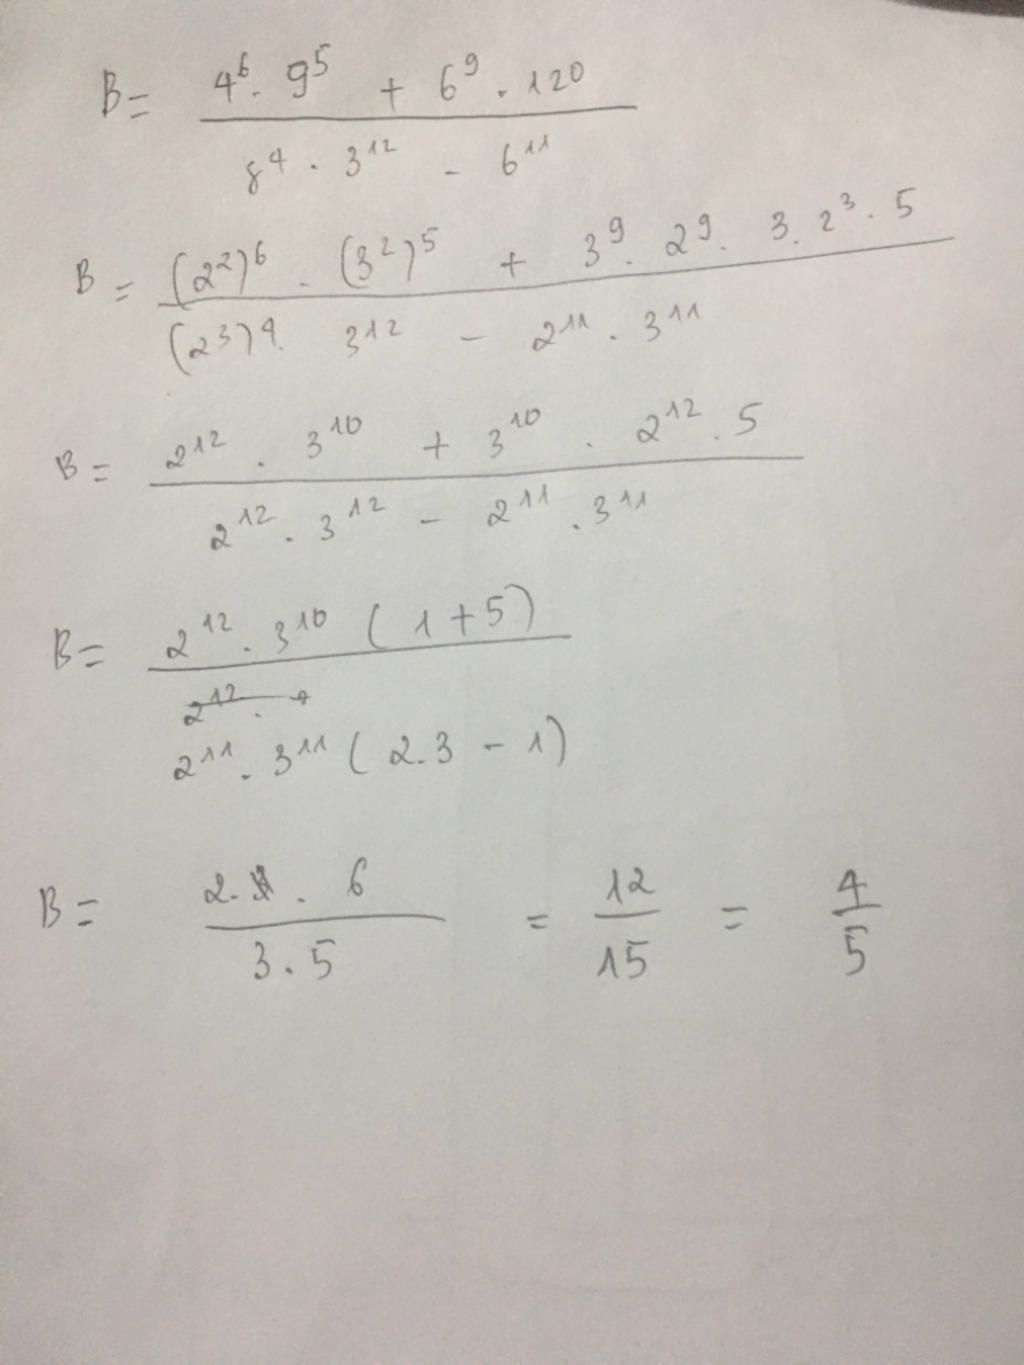 B = \frac{4^6 . 9^5 + 6^9 . 120}{8^4 . 3^{12} - 6^{11}}
B = \frac{(2^2)^6 . (3^2)^5 + 3^9 . 2^9 . 3 . 2^3 . 5}{(2^3)^4 . 3^{12} - 2^{11} . 3^{11}}
B = \frac{2^{12} . 3^{10} + 3^{10} . 2^{12} . 5}{2^{12} . 3^{12} - 2^{11} . 3^{11}}
B = \frac{2^{12} . 3^{10} (1 + 5)}{2^{11} . 3^{11} (2 . 3 - 1)}
B = \frac{2 . 6}{3 . 5} = \frac{12}{15} = \frac{4}{5}